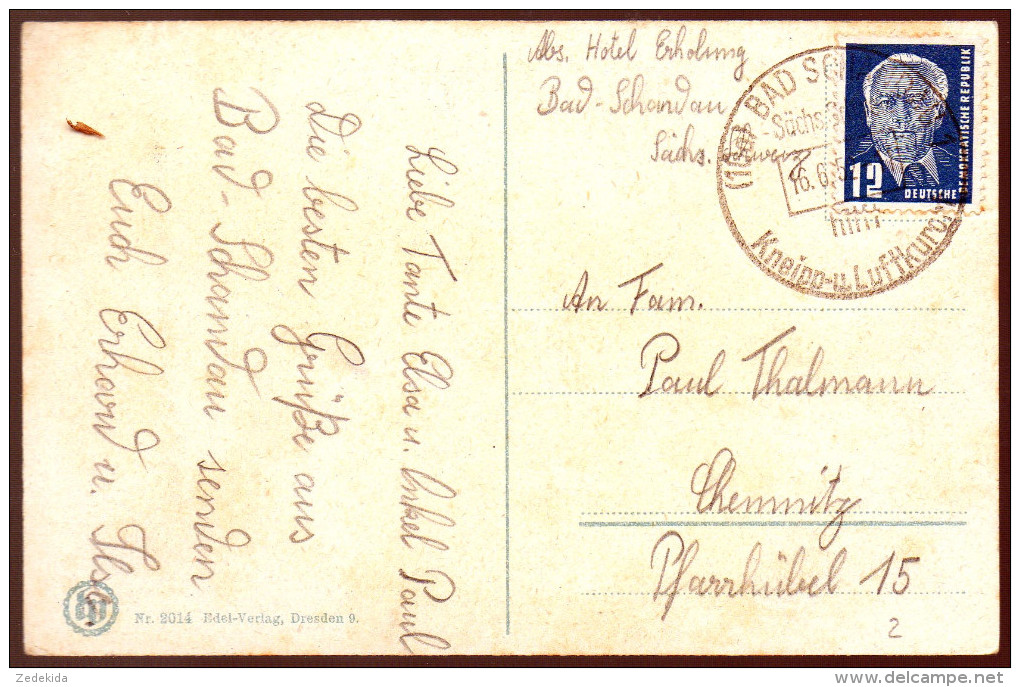 Abs. Hotel Erholung
Bad-Schandau
Sächs. Schweiz
DEUTSCHE DEMOKRATISCHE REPUBLIK
12
BAD
Sächs.
16.6.5
Kneipp-u. Luftkuro
An Fam.
Paul Thalmann
Chemnitz
Pfarrhübel 15
2
Liebe Tante Elsa u. Onkel Paul
Die besten Grüße aus
Bad-Schandau senden
Euch Erhard u. Ilse
Nr. 2014 Edel-Verlag, Dresden 9.
Zedekida
delcampe.net